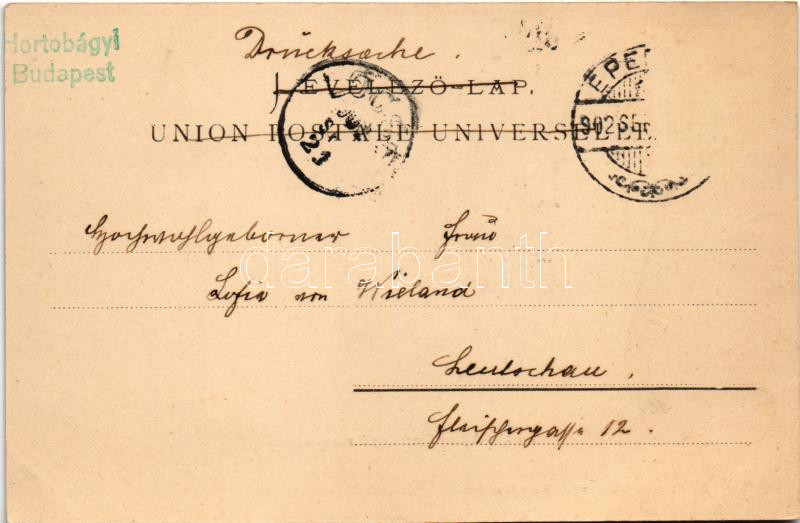 Hortobágyi
Budapest
Drucksache.
LEVELEZŐ-LAP.
UNION POSTALE UNIVERSELLE
EPER
902 SE
LŐCSE
Hochwohlgeborner Frau
Sofia von Wieland
darabanth
Leutschau.
Fleischergasse 12.